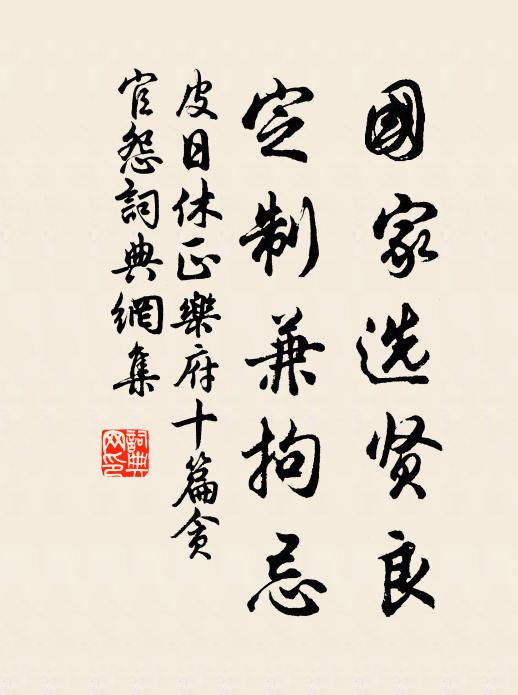 國家选贤良
定制兼拘忌
皮日休正樂府十篇貪
官怨詞典網集
詞典网印